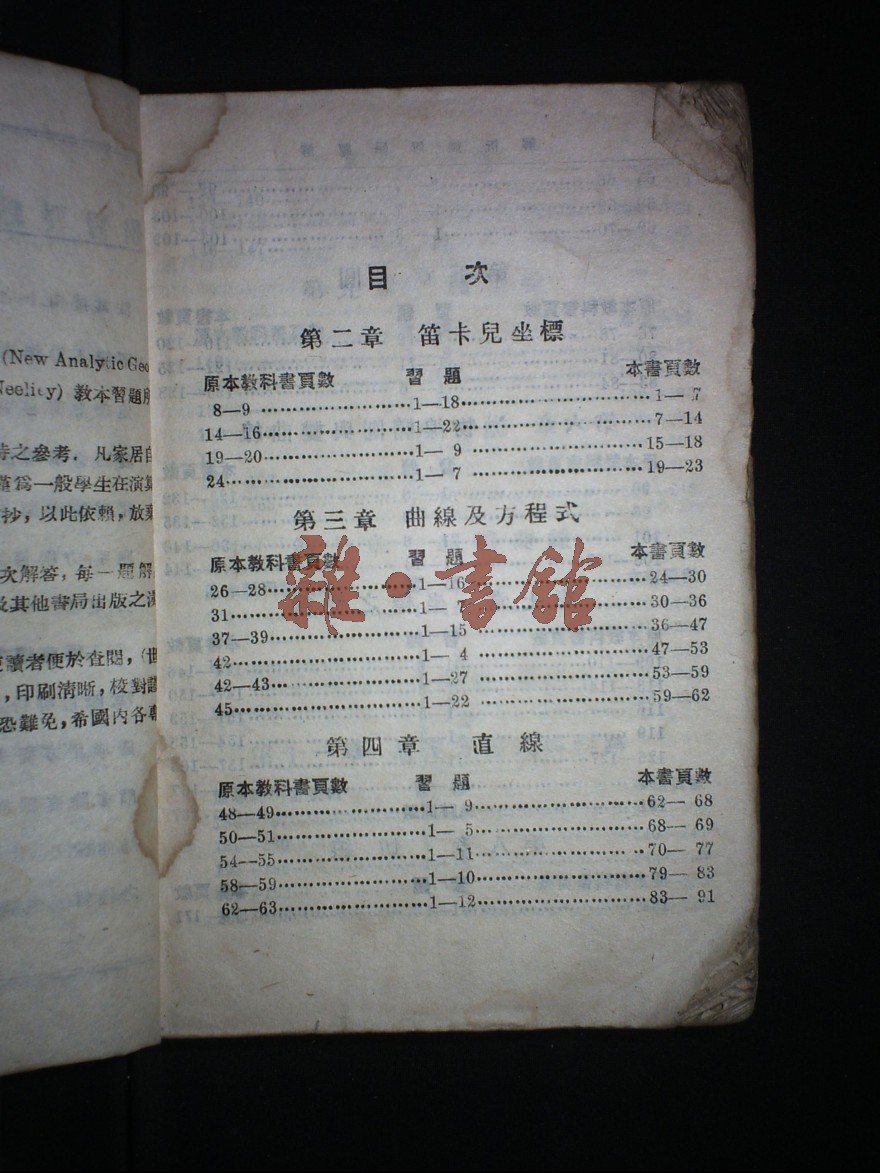 (New Analytic Geo
Neelity) 教本習題
待之參考．凡家居自
僅爲一般學生在演算
抄，以此依賴，放棄
次解答，每一題解
及其他書局出版之
讀者便於查閱，(世
，印刷清晰，校對
恐難免，希國內各專
目 次
第二章 笛卡兒坐標
原本教科書頁數 習題 本書頁數
8—9 …… 1—18 …… 1— 7
14—16 …… 1—22 …… 7—14
19—20 …… 1— 9 …… 15—18
24 …… 1— 7 …… 19—23
第三章 曲線及方程式
原本教科書頁數 習題 本書頁數
26—28 …… 1—16 …… 24—30
31 …… 1— 7 …… 30—36
37—39 …… 1—15 …… 36—47
42 …… 1— 4 …… 47—53
42—43 …… 1—27 …… 53—59
45 …… 1—22 …… 59—62
第四章 直線
原本教科書頁數 習題 本書頁數
48—49 …… 1— 9 …… 62— 68
50—51 …… 1— 5 …… 68— 69
54—55 …… 1—11 …… 70— 77
58—59 …… 1—10 …… 79— 83
62—63 …… 1—12 …… 83— 91
雜·書館